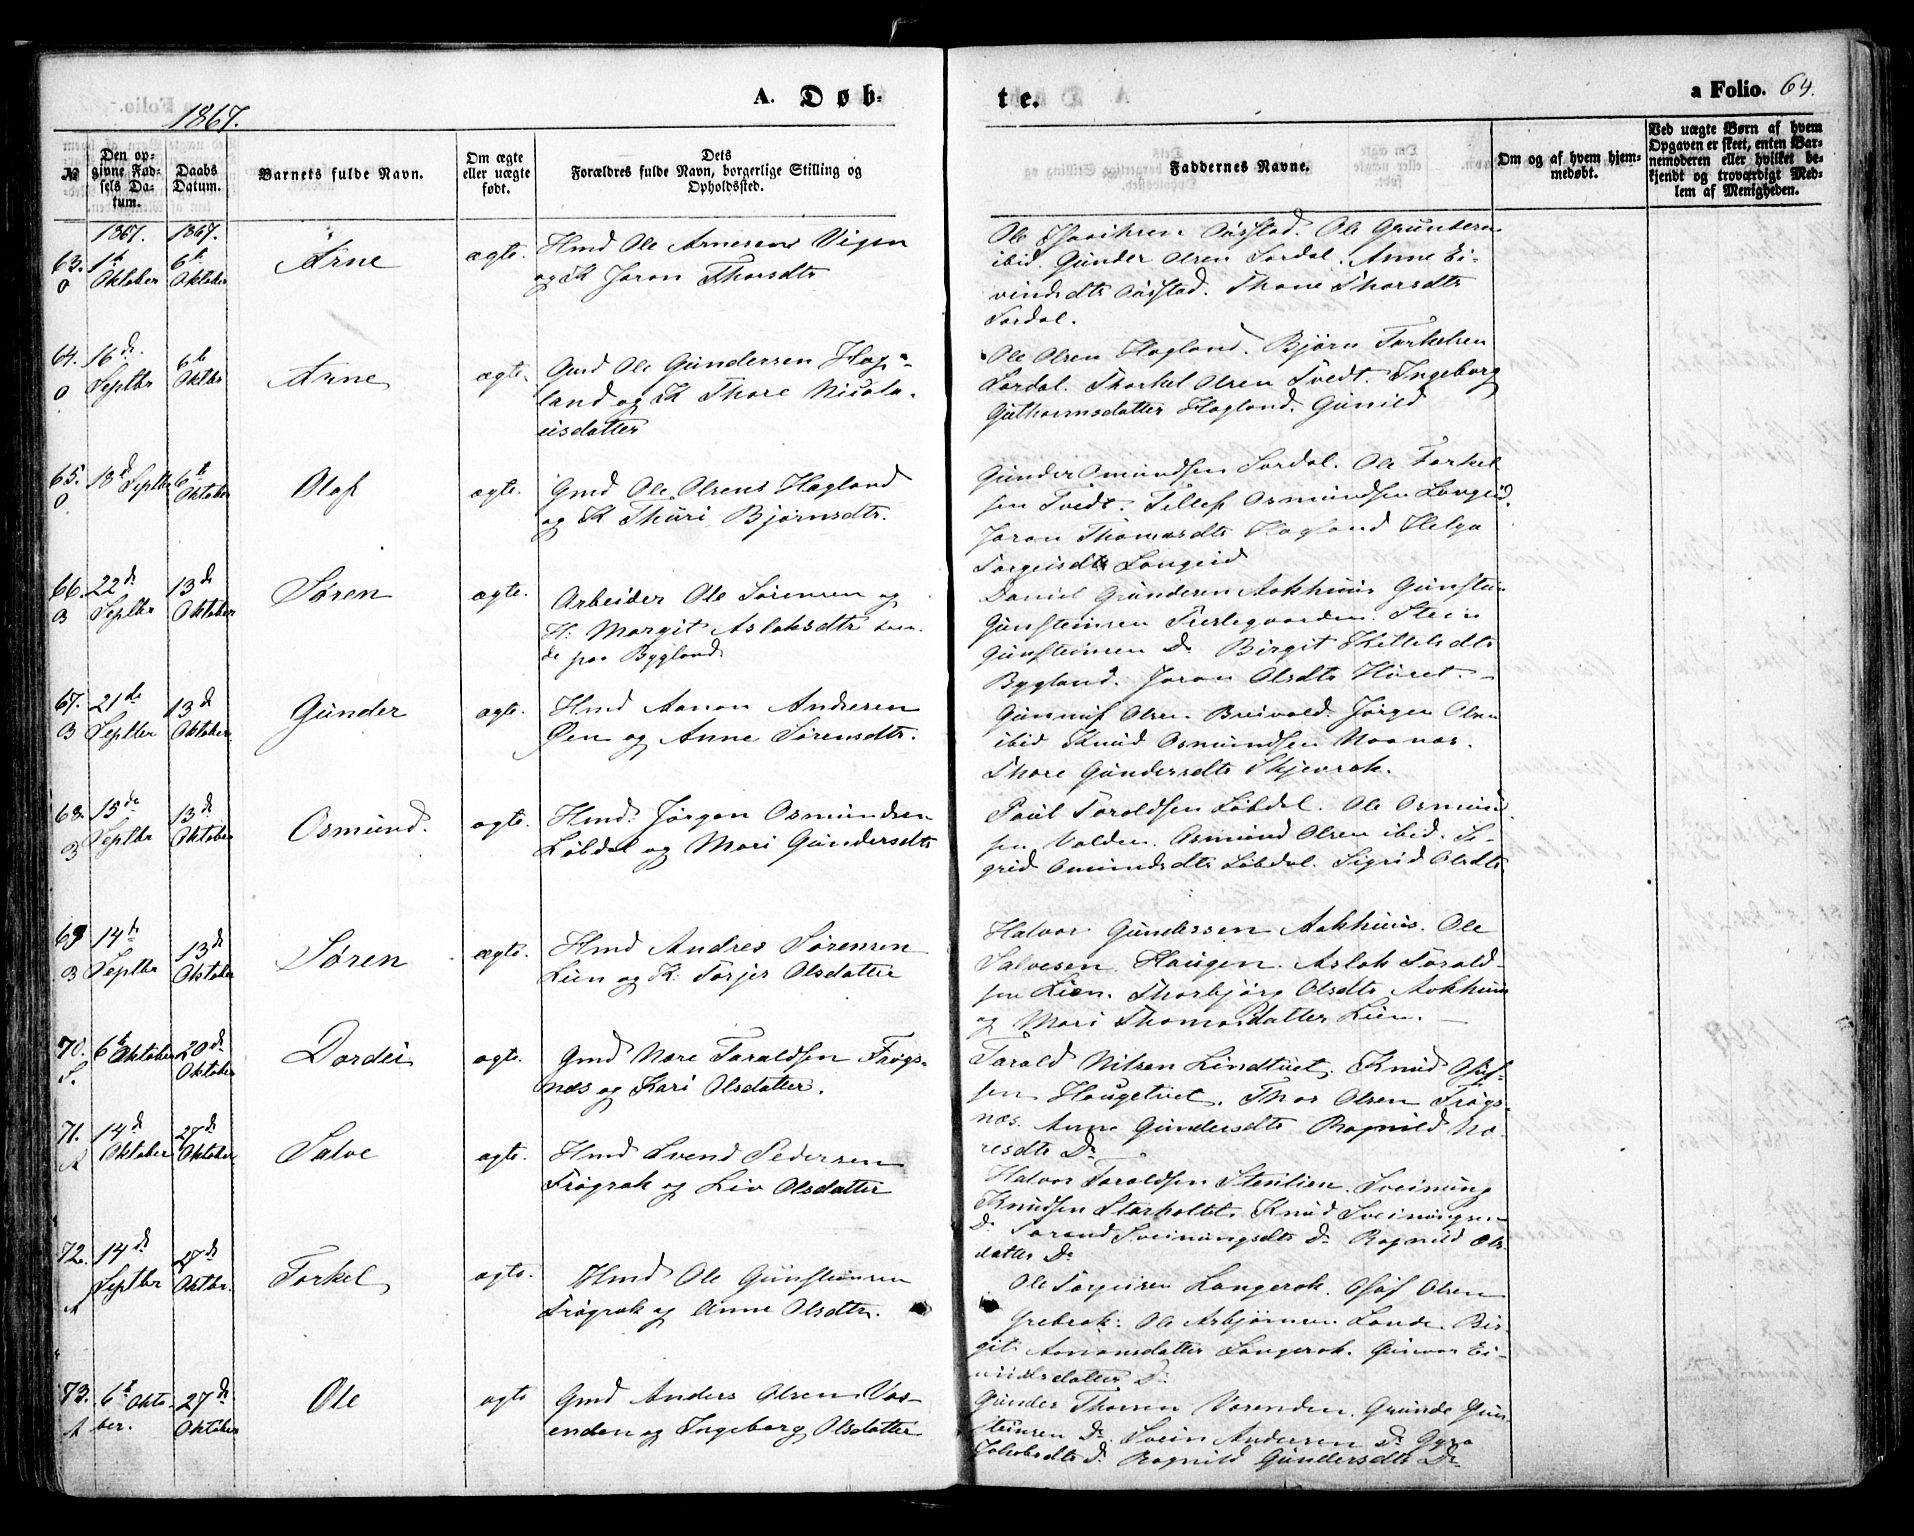 1867.
A. Døb-
te.
a Folio. 64.
№
Den op-
givne Fød-
sels Da-
tum.
Daabs
Datum.
Barnets fulde Navn.
Om ægte
eller uægte
født.
Dets
Forældres fulde Navn, borgerlige Stilling og
Opholdssted.
Faddernes Navne.
Om og af hvem hjem-
medøbt.
Ved uægte Børn af hvem
Opgaven er skeet, enten Bar-
nemoderen eller hvilket be-
kjendt og troværdigt Med-
lem af Menigheden.
1867. 1867.
63. 1te Oktober 6te Oktober
O
Arne
ægte.
Hmd Ole Arnesen Vigen
og K Joron Thorsdtr
Ole Olsen Gunders
ibid. Gunder Olsen Sordal. Anne Ei-
vindsdtr Thone Thorsdtr
Sordal.
64. 16de Septbr 6te Oktbr
O
Arne
ægte.
Gmd Ole Gundersen Hag-
land og K Thore Nicola-
isdatter
Ole Olsen Hagland. Bjørn Torkelsen
Sordal. Thorkel Olsen Tvedt. Ingeborg
Guthormsdatter Hagland. Gunild
65. 18de Septbr 6te Oktober
O
Olaf
ægte.
Gmd Ole Olsens Hagland
og K Thuri Bjørnsdtr.
Gunder Omundsen Sordal. Ole Torkel-
sen Tvedt. Tellef Osmundsen Longeid.
Joron Thomasdtr Hagland Helga
Torgeisdtr Longeid
66. 22de Septbr 13de Oktober
B
Søren
ægte.
Arbeider Ole Sørensen og
H: Margit Aslaksdtr
de paa Bygland
Daniel Gundersen Aakhuus Gunstein
Gunsteinsen Stein
Gunsteinsen Do Birgit Kittelsdtr
Bygland. Joron Olsdtr Høret.
67. 21de Septbr 13de Oktober
B
Gunder
ægte.
Hmd Aanon Andersen
Øen og Anne Sørensdtr.
Gunnuf Olsen Breivold. Jørgen Olsen
ibid Knud Osmundsen
Thore Gundersdtr Skjevrak.
68. 15de Septbr 13de Oktober
B
Osmund.
ægte.
Hmd: Jørgen Osmundsen
Løbdal og Mari Gundersdtr
Paul Taraldsen Løbdal. Ole Osmund-
sen Valden. Osmund Olsen ibid. Si-
grid Omundsdtr Løbdal. Sigrid Olsdtr
69 14de Septbr 13de Oktober
B
Søren
ægte.
Hmd Andres Sørensen
Lien og K: Torjer Olsdatter
Halvor Gundersen Aakhuus. Ole
Salvesen Haugen. Aslak Tarald-
sen Lien. Thorbjørg Olsdtr Aakhuus
og Mari Thomasdatter Lien.
70. 6te Oktober 20de Oktober
S.
Dordei
ægte.
Gmd Nære Taraldsen Frøgs-
næs og Kari Olsdatter.
Tarald Nilsen Lindtvet. Knud
sen Haugetvet. Thor Olsen Frøgs-
næs. Anne Gundersdtr Ragnild Næ-
resdtr Do
71. 14de Oktober 27de Oktober
A
Salve
ægte.
Hmd Svend Pedersen
Frøgrak og Liv Olsdatter
Halvor Taraldsen Steulien Sveinung
Knudsen Storholtet. Knud Sveinungsen
Do Torand Sveinungsdtr Do Ragnild Ols-
datter Do
72. 14de Septbr 27de Oktbr.
A
Torkel
ægte.
Hmd Ole Gunsteinsen
Frøgrak og Anne Olsdtr.
Ole Torgeirsen Langerak. Olsen
Grebrok. Ole Asbjørnsen Lande. Bir-
git Aanonsdatter Langerak. Gunvor Ei-
vindsdatter Do
73. 6te Okto-
ber. 27de Oktober
A
Ole
ægte
Gmd Anders Olsen Vas-
enden og Ingeborg Olsdatter
Gunder Thorsen Vasenden. Grunde Gun-
steinsen Do. Svein Andersen Do Gyro
Jakobsdtr Do. Ragnild Gundersdtr Do